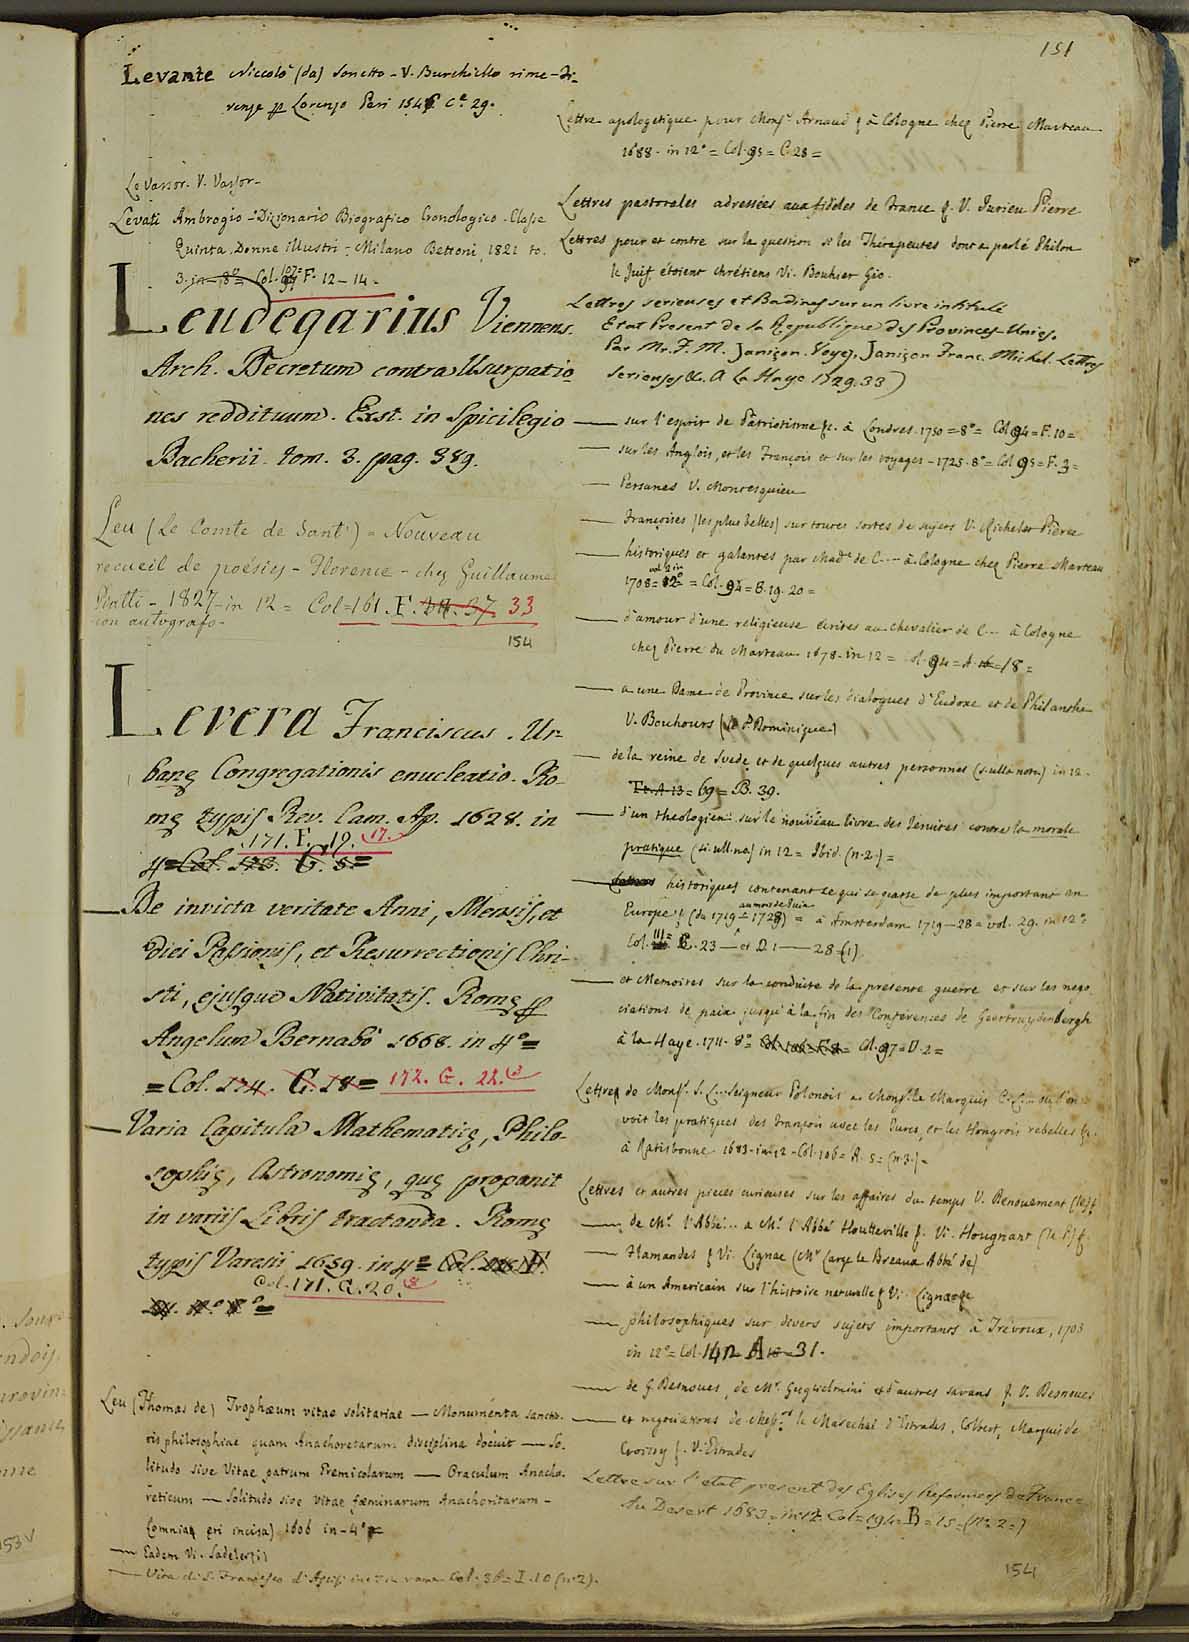 151
Levante Niccolò (da) Sonetto - V. Burchiello rime - Fi-
renze Lorenzo Peri 154 C.e 29.
Le Vassor. V. Vassor -
Levati Ambrogio - Dizionario Biografico Cronologico - Classe
Quinta. Donne illustri - Milano Bettoni 1821 to.
3. in-8° = Col. 107 = F. 12 - 14 -
Leudegarius Viennens.
Arch. Decretum contra Usurpatio
nes reddituum. Exst. in Spicilegio
Bacherii. tom. 3. pag. 389.
Leu (Le Comte de Sant') = Nouveau
recueil de poésies - Florence - chez Guillaume
Piatti - 1827 - in 12 = Col = 161. F. 37. 33
con autografo -
154
Levera Franciscus. Ur-
banę Congregationis enucleatio. Ro-
mę typis Rev. Cam. Ap. 1628. in
171. F. 19. (17.
4° = Col. 173. C. 5. =
— De invicta veritate Anni, Mensis, et
diei Passionis, et Resurrectionis Chri-
sti, ejusque Nativitatis. Romę
Angelum Bernabò 1668. in 4° =
= Col. 174. C. 18 = 172. G. 22.
— Varia Capitula Mathematicę, Philo-
sophię, Astronomię, quę proponit
in variis Libris tractanda. Romę
typis Varesii 1659. in 4° = Col. F.
Col. 171. G. 20.
Leu (Thomas de) Trophæum vitae solitariae — Monumenta sancto-
ris philosophiae quam Anachoretarum disciplina docuit — So-
litudo sive Vitae patrum Eremicolarum — Oraculum Anacho-
reticum — Solitudo sive Vitae fæminarum Anachoritarum -
(omnia æri incisa) 1606 in - 4°
— Eadem Vi. Sadeler (i)
— Vita di S. Francesco d'Assisi in rame Col. 36 = I. 10 (n. 2).
Lettre apologetique pour Mons.r Arnaud à Cologne chez Pierre Marteau
1688. in 12° = Col. 95 = C. 28 =
Lettres pastorales adressées aux fidèles de France &. V. Jurieu Pierre
Lettres pour et contre sur la question si les Thérapeutes dont a parlé Philon
le Juif étoient chrétiens Vi. Bouhier Gio.
Lettres serieuses et Badines sur un livre intitulé
Etat Present de la Republique des Provinces-Unies.
Par Mr. F. M. Janiçon. Voyez. Janiçon Franc. Michel. Lettres
Serieuses &. A La Haye 1729. 33)
— sur l'esprit de Patriotisme &c. à Londres. 1750 = 8° = Col 94 = F. 10 =
— sur les Anglois, et les François et sur les voyages - 1725. 8° = Col 95 = F. 3 =
— Persanes V. Montesquieu
— Françoises (les plus belles) sur toutes sortes de sujets V. Richelet Pierre
— historiques et galantes par Mad.e de C--- à Cologne chez Pierre Marteau
vol 2 in
1708 = 12° = Col. 94 = B. 19. 20 =
— d'amour d'une religieuse écrites au chevalier de C... à Cologne
chez Pierre du Marteau 1678. in 12 = Col. 94 = A. 16 = 18 =
— a une Dame de Province sur les dialogues d'Eudoxe et de Philanthe
V. Bouhours (le P. Dominique)
— de la reine de Suede et de quelques autres personnes (s. ulla nota) in 12.
Tt. A. 13 = 69 = B. 39.
— d'un theologien sur le nouveau livre des Jesuites contre la morale
pratique (si. ull. no.) in 12 = Ibid. (n. 2.) =
— Lettres historiques contenant ce qui se passe de plus important en
Europe & (du 1719 = 1728) = à Amsterdam 1719 — 28 = vol. 29. in 12°
au mois de Juin
Col. 111 = C. 23 — et D. 1 — 28 (1)
— et Memoires sur la conduite de la presente guerre et sur les nego
ciations de paix jusqu'à la fin des Conferences de Geertruydenbergh
à la Haye. 1711. 8° = Col. 97 = D. 2 =
Lettres de Mons.r S. C... Seigneur Polonois a Mons.r le Marquis C. C... ou l'on
voit les pratiques des François avec les Turcs, et les Hongrois rebelles &.
à Ratisbonne 1683 - in 12 - Col. 106 = A. 5 = (n. 3.) =
Lettres et autres pieces curieuses sur les affaires du temps V. Denouement (le) &
— de M.r l'Abbé... a M.r l'Abbé Houtteville &. Vi. Hougnant (le P.) &.
— Flamandes & Vi. Lignac (M.r Large le Breaux Abbé de)
— à un Americain sur l'histoire naturelle & Vi. Lignac &
— philosophiques sur divers sujets importants à Trévoux, 1703
in 12° = Col. 142 A 18 = 31.
— de G. Desnoues, de M.r Guglielmini et d'autres savans &. V. Desnoues
— et negociations de Mess.rs le Marechal d'Estrades, Colbert, Marquis de
Croissy &. V. Estrades
Lettre sur l'etat present des Eglises Reformées de France
Au Desert 1683 = in 12 Col = 194 = B = 15 = (n. 2 =)
154
153v